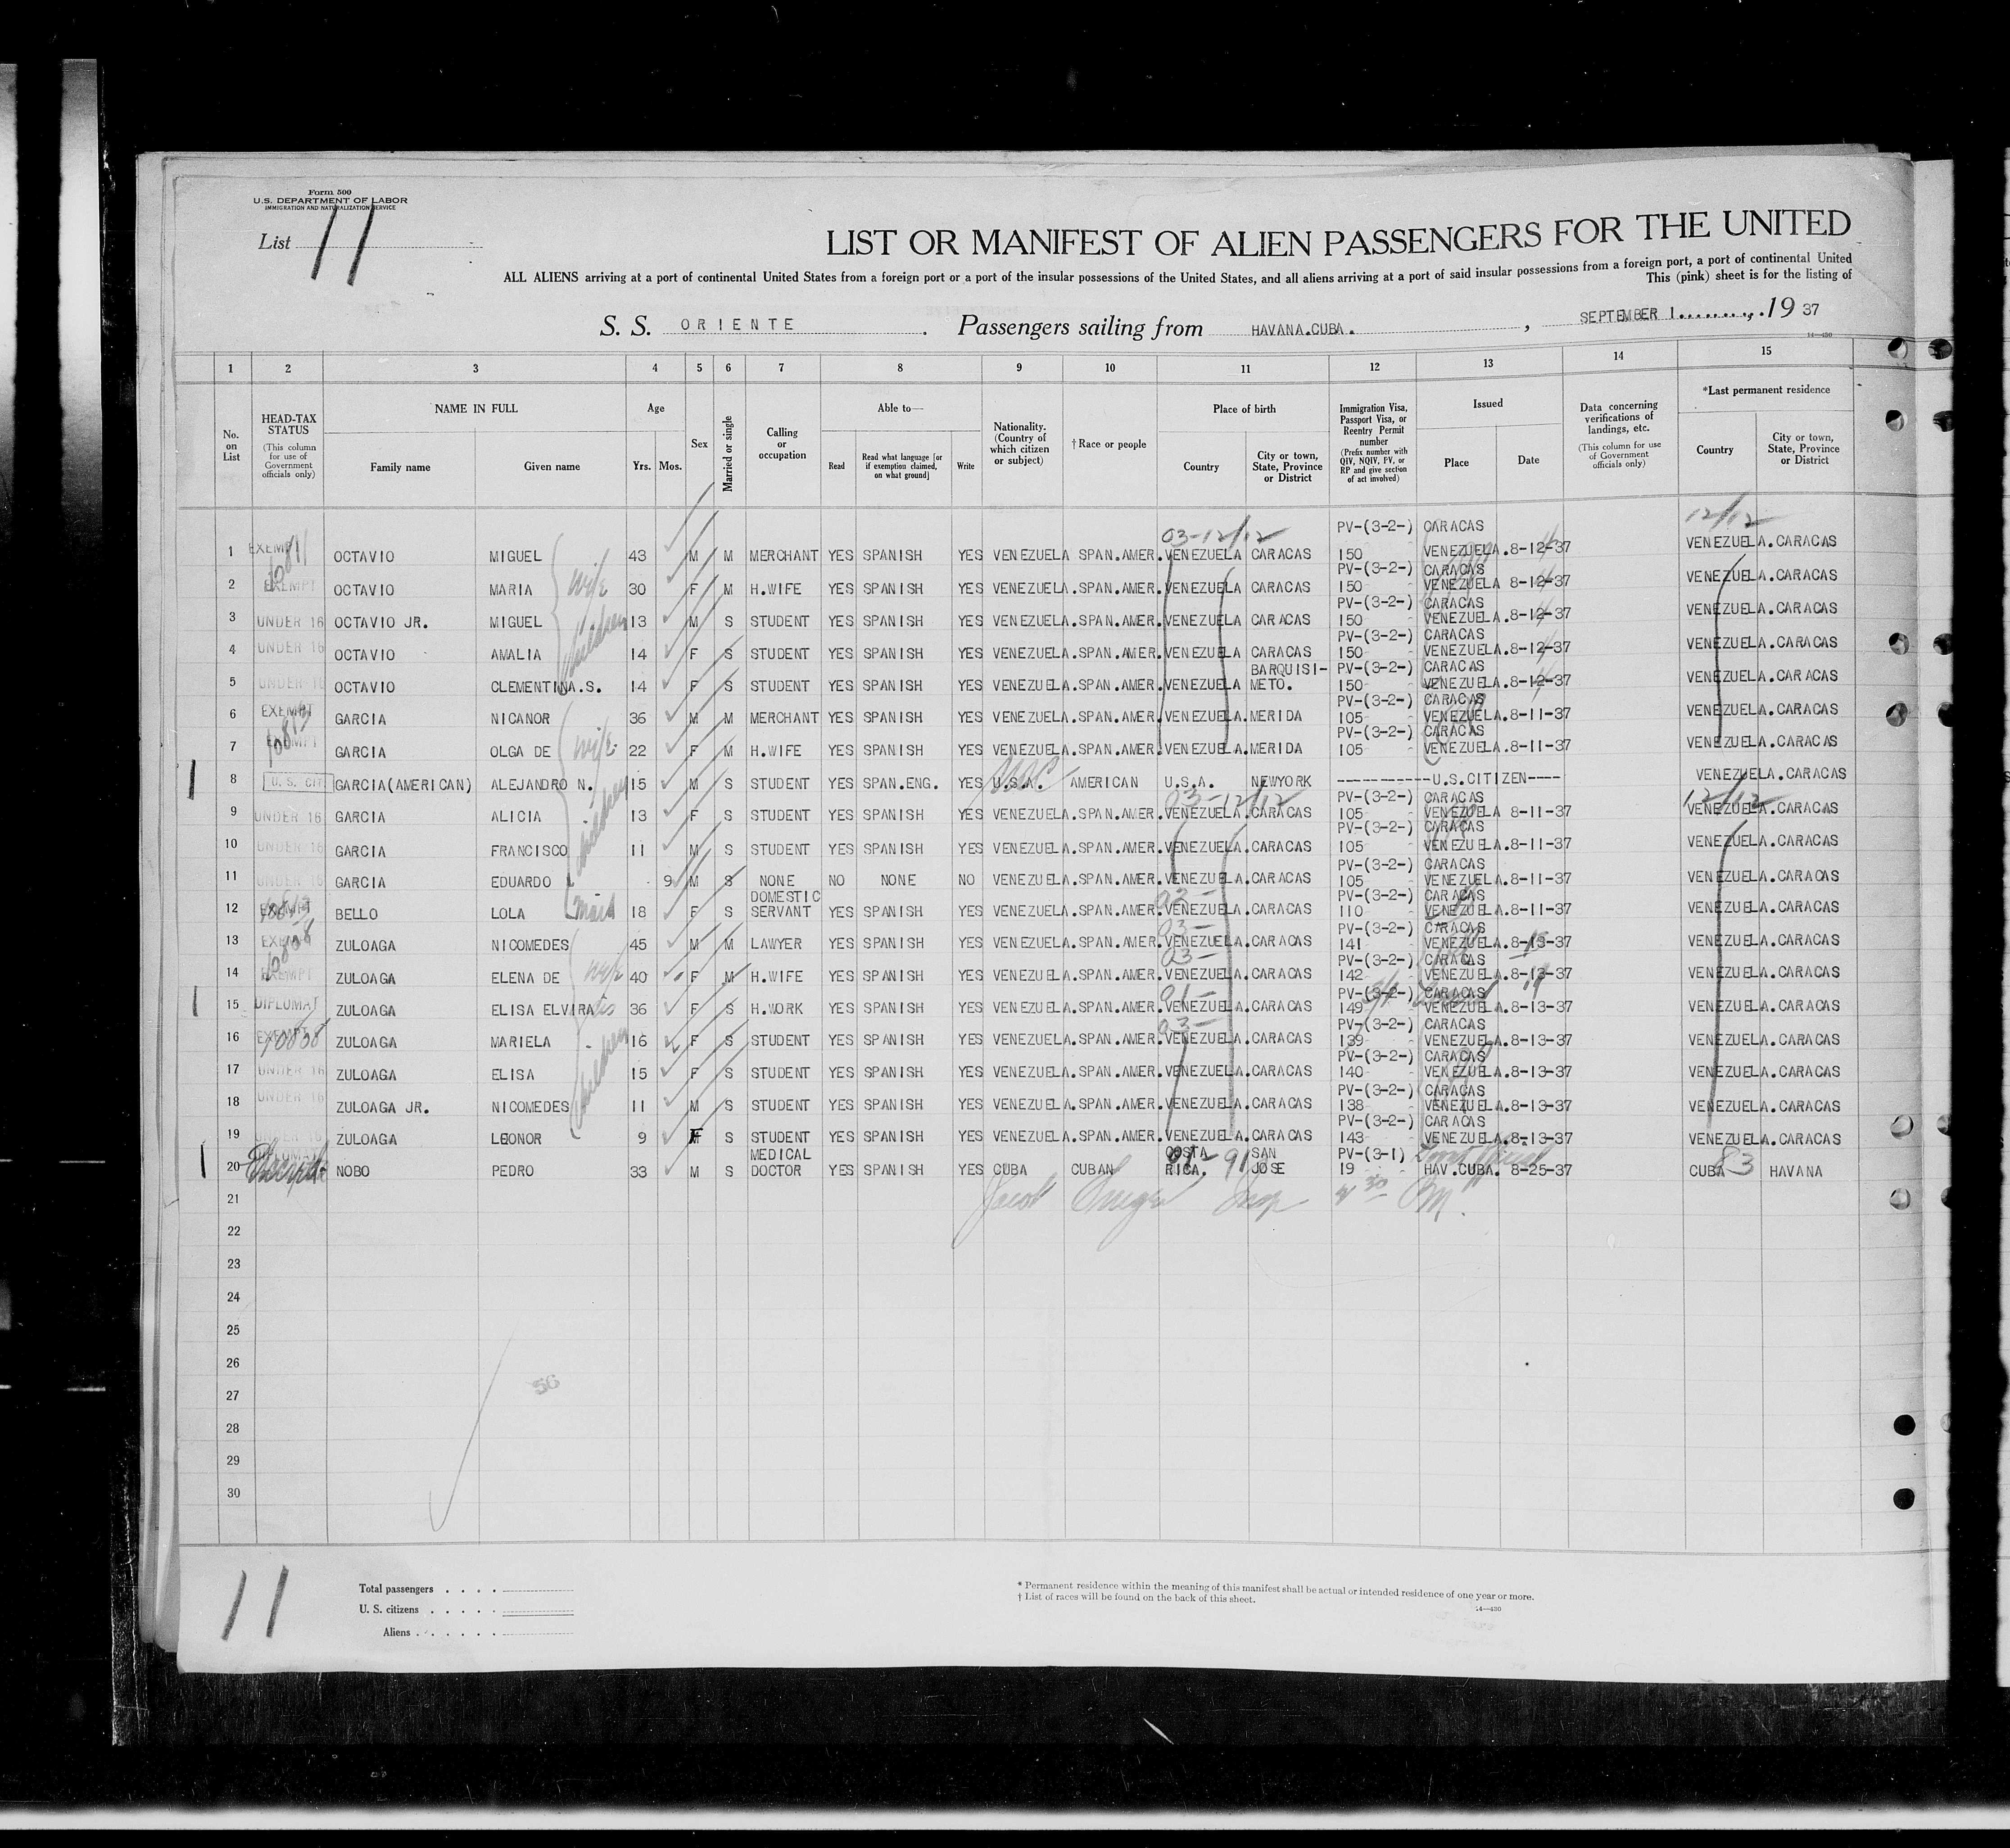 Form 500
U.S. DEPARTMENT OF LABOR
IMMIGRATION AND NATURALIZATION SERVICE
List 11
LIST OR MANIFEST OF ALIEN PASSENGERS FOR THE UNITED
ALL ALIENS arriving at a port of continental United States from a foreign port or a port of the insular possessions of the United States, and all aliens arriving at a port of said insular possessions from a foreign port, a port of continental United
This (pink) sheet is for the listing of
S. S. ORIENTE . Passengers sailing from HAVANA.CUBA. , SEPTEMBER 1........, .19 37
14—430
1 2 3 4 5 6 7 8 9 10 11 12 13 14 15
No. on List
HEAD-TAX STATUS (This column for use of Government officials only)
NAME IN FULL
Family name Given name
Age
Yrs. Mos.
Sex
Married or single
Calling or occupation
Able to—
Read Read what language [or if exemption claimed, on what ground] Write
Nationality. (Country of which citizen or subject)
† Race or people
Place of birth
Country City or town, State, Province or District
Immigration Visa, Passport Visa, or Reentry Permit number (Prefix number with QIV, NQIV, PV, or RP and give section of act involved)
Issued
Place Date
Data concerning verifications of landings, etc. (This column for use of Government officials only)
*Last permanent residence
Country City or town, State, Province or District
03-12/12 PV-(3-2-) CARACAS 12/12
1 EXEMPT OCTAVIO MIGUEL 43 M M MERCHANT YES SPANISH YES VENEZUELA SPAN.AMER. VENEZUELA CARACAS 150 VENEZUELA.8-12-37 VENEZUELA.CARACAS
PV-(3-2-) CARACAS
2 EXEMPT OCTAVIO MARIA wife 30 F M H.WIFE YES SPANISH YES VENEZUELA.SPAN.AMER.VENEZUELA CARACAS 150 VENEZUELA 8-12-37 VENEZUELA.CARACAS
PV-(3-2-) CARACAS
3 UNDER 16 OCTAVIO JR. MIGUEL children 13 M S STUDENT YES SPANISH YES VENEZUELA.SPAN.AMER.VENEZUELA CARACAS 150 VENEZUELA.8-12-37 VENEZUELA.CARACAS
PV-(3-2-) CARACAS
4 UNDER 16 OCTAVIO AMALIA 14 F S STUDENT YES SPANISH YES VENEZUELA.SPAN.AMER.VENEZUELA CARACAS 150 VENEZUELA.8-12-37 VENEZUELA.CARACAS
BARQUISI- PV-(3-2-) CARACAS
5 UNDER 16 OCTAVIO CLEMENTINA.S. 14 F S STUDENT YES SPANISH YES VENEZUELA.SPAN.AMER.VENEZUELA METO. 150 VENEZUELA.8-12-37 VENEZUELA.CARACAS
PV-(3-2-) CARACAS
6 EXEMPT GARCIA NICANOR 36 M M MERCHANT YES SPANISH YES VENEZUELA.SPAN.AMER.VENEZUELA.MERIDA 105 VENEZUELA.8-11-37 VENEZUELA.CARACAS
PV-(3-2-) CARACAS
7 EXEMPT GARCIA OLGA DE wife 22 F M H.WIFE YES SPANISH YES VENEZUELA.SPAN.AMER.VENEZUELA.MERIDA 105 VENEZUELA.8-11-37 VENEZUELA.CARACAS
8 U. S. CIT GARCIA(AMERICAN) ALEJANDRO N. 15 M S STUDENT YES SPAN.ENG. YES U.S.A. AMERICAN U.S.A. NEWYORK -----------U.S.CITIZEN---- VENEZUELA.CARACAS
03-12/12 PV-(3-2-) CARACAS 12/12
9 UNDER 16 GARCIA ALICIA children 13 F S STUDENT YES SPANISH YES VENEZUELA.SPAN.AMER.VENEZUELA.CARACAS 105 VENEZUELA 8-11-37 VENEZUELA.CARACAS
PV-(3-2-) CARACAS
10 UNDER 16 GARCIA FRANCISCO 11 M S STUDENT YES SPANISH YES VENEZUELA.SPAN.AMER.VENEZUELA.CARACAS 105 VENEZUELA.8-11-37 VENEZUELA.CARACAS
PV-(3-2-) CARACAS
11 UNDER 16 GARCIA EDUARDO 9 M S NONE NO NONE NO VENEZUELA.SPAN.AMER.VENEZUELA.CARACAS 105 VENEZUELA.8-11-37 VENEZUELA.CARACAS
DOMESTIC 03- PV-(3-2-) CARACAS
12 EXEMPT BELLO LOLA maid 18 F S SERVANT YES SPANISH YES VENEZUELA.SPAN.AMER.VENEZUELA.CARACAS 110 VENEZUELA.8-11-37 VENEZUELA.CARACAS
03- PV-(3-2-) CARACAS
13 EXEMPT ZULOAGA NICOMEDES 45 M M LAWYER YES SPANISH YES VENEZUELA.SPAN.AMER.VENEZUELA.CARACAS 141 VENEZUELA.8-13-37 VENEZUELA.CARACAS
03- PV-(3-2-) CARACAS
14 EXEMPT ZULOAGA ELENA DE wife 40 F M H.WIFE YES SPANISH YES VENEZUELA.SPAN.AMER.VENEZUELA.CARACAS 142 VENEZUELA.8-13-37 VENEZUELA.CARACAS
01- PV-(3-2-) CARACAS
15 DIPLOMAT ZULOAGA ELISA ELVIRA sis 36 F S H.WORK YES SPANISH YES VENEZUELA.SPAN.AMER.VENEZUELA.CARACAS 149 VENEZUELA.8-13-37 VENEZUELA.CARACAS
03- PV-(3-2-) CARACAS
16 EXEMPT 10858 ZULOAGA MARIELA 16 F S STUDENT YES SPANISH YES VENEZUELA.SPAN.AMER.VENEZUELA.CARACAS 139 VENEZUELA.8-13-37 VENEZUELA.CARACAS
PV-(3-2-) CARACAS
17 UNDER 16 ZULOAGA ELISA children 15 F S STUDENT YES SPANISH YES VENEZUELA.SPAN.AMER.VENEZUELA.CARACAS 140 VENEZUELA.8-13-37 VENEZUELA.CARACAS
PV-(3-2-) CARACAS
18 UNDER 16 ZULOAGA JR. NICOMEDES 11 M S STUDENT YES SPANISH YES VENEZUELA.SPAN.AMER.VENEZUELA.CARACAS 138 VENEZUELA.8-13-37 VENEZUELA.CARACAS
PV-(3-2-) CARACAS
19 ZULOAGA LEONOR 9 F S STUDENT YES SPANISH YES VENEZUELA.SPAN.AMER.VENEZUELA.CARACAS 143 VENEZUELA.8-13-37 VENEZUELA.CARACAS
MEDICAL COSTA SAN PV-(3-1)
20 DIPLOMAT NOBO PEDRO 33 M S DOCTOR YES SPANISH YES CUBA CUBAN RICA. 91 JOSE 19 HAV.CUBA. 8-25-37 CUBA 83 HAVANA
21 Jacob Insp 4 30 PM.
22
23
24
25
26
27 56
28
29
30
11
Total passengers . . . .
U. S. citizens . . . . .
Aliens . . . . . .
* Permanent residence within the meaning of this manifest shall be actual or intended residence of one year or more.
† List of races will be found on the back of this sheet.
14—430